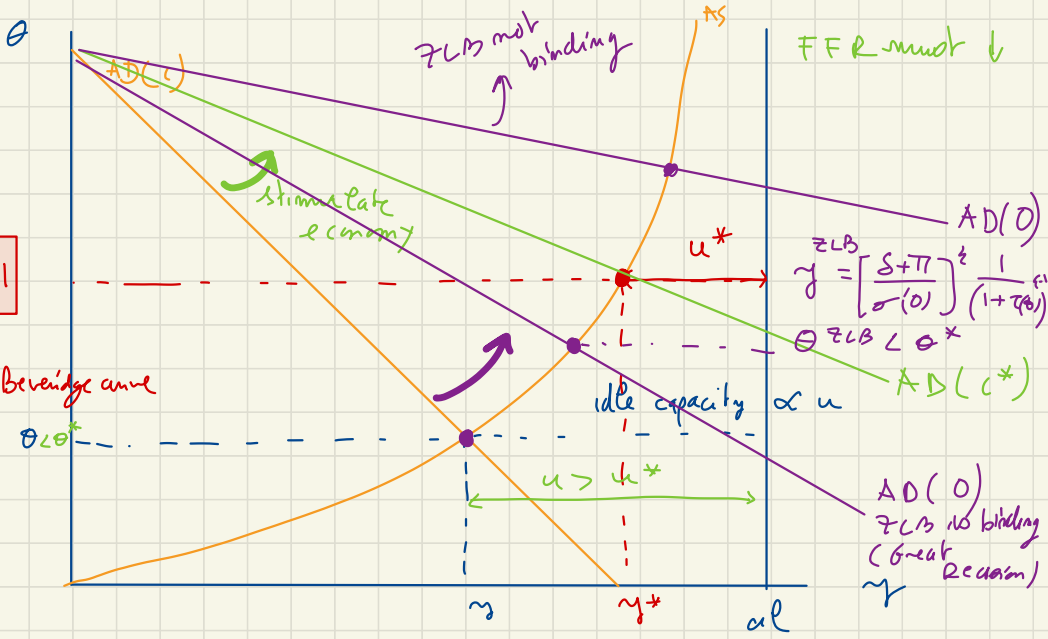 θ
AS
ZLB not
binding
FFR must ↓
AD(i)
stimulate
economy
AD(0)
u*
y^ZLB = [δ+π / σ(0)]^ε 1 / (1+τ(θ))^ε-1
1
θ^ZLB < θ*
Beveridge curve
AD(i*)
idle capacity ∝ u
θ<θ*
u > u*
AD(0)
ZLB is binding
(Great
Recession)
y
y*
al
y